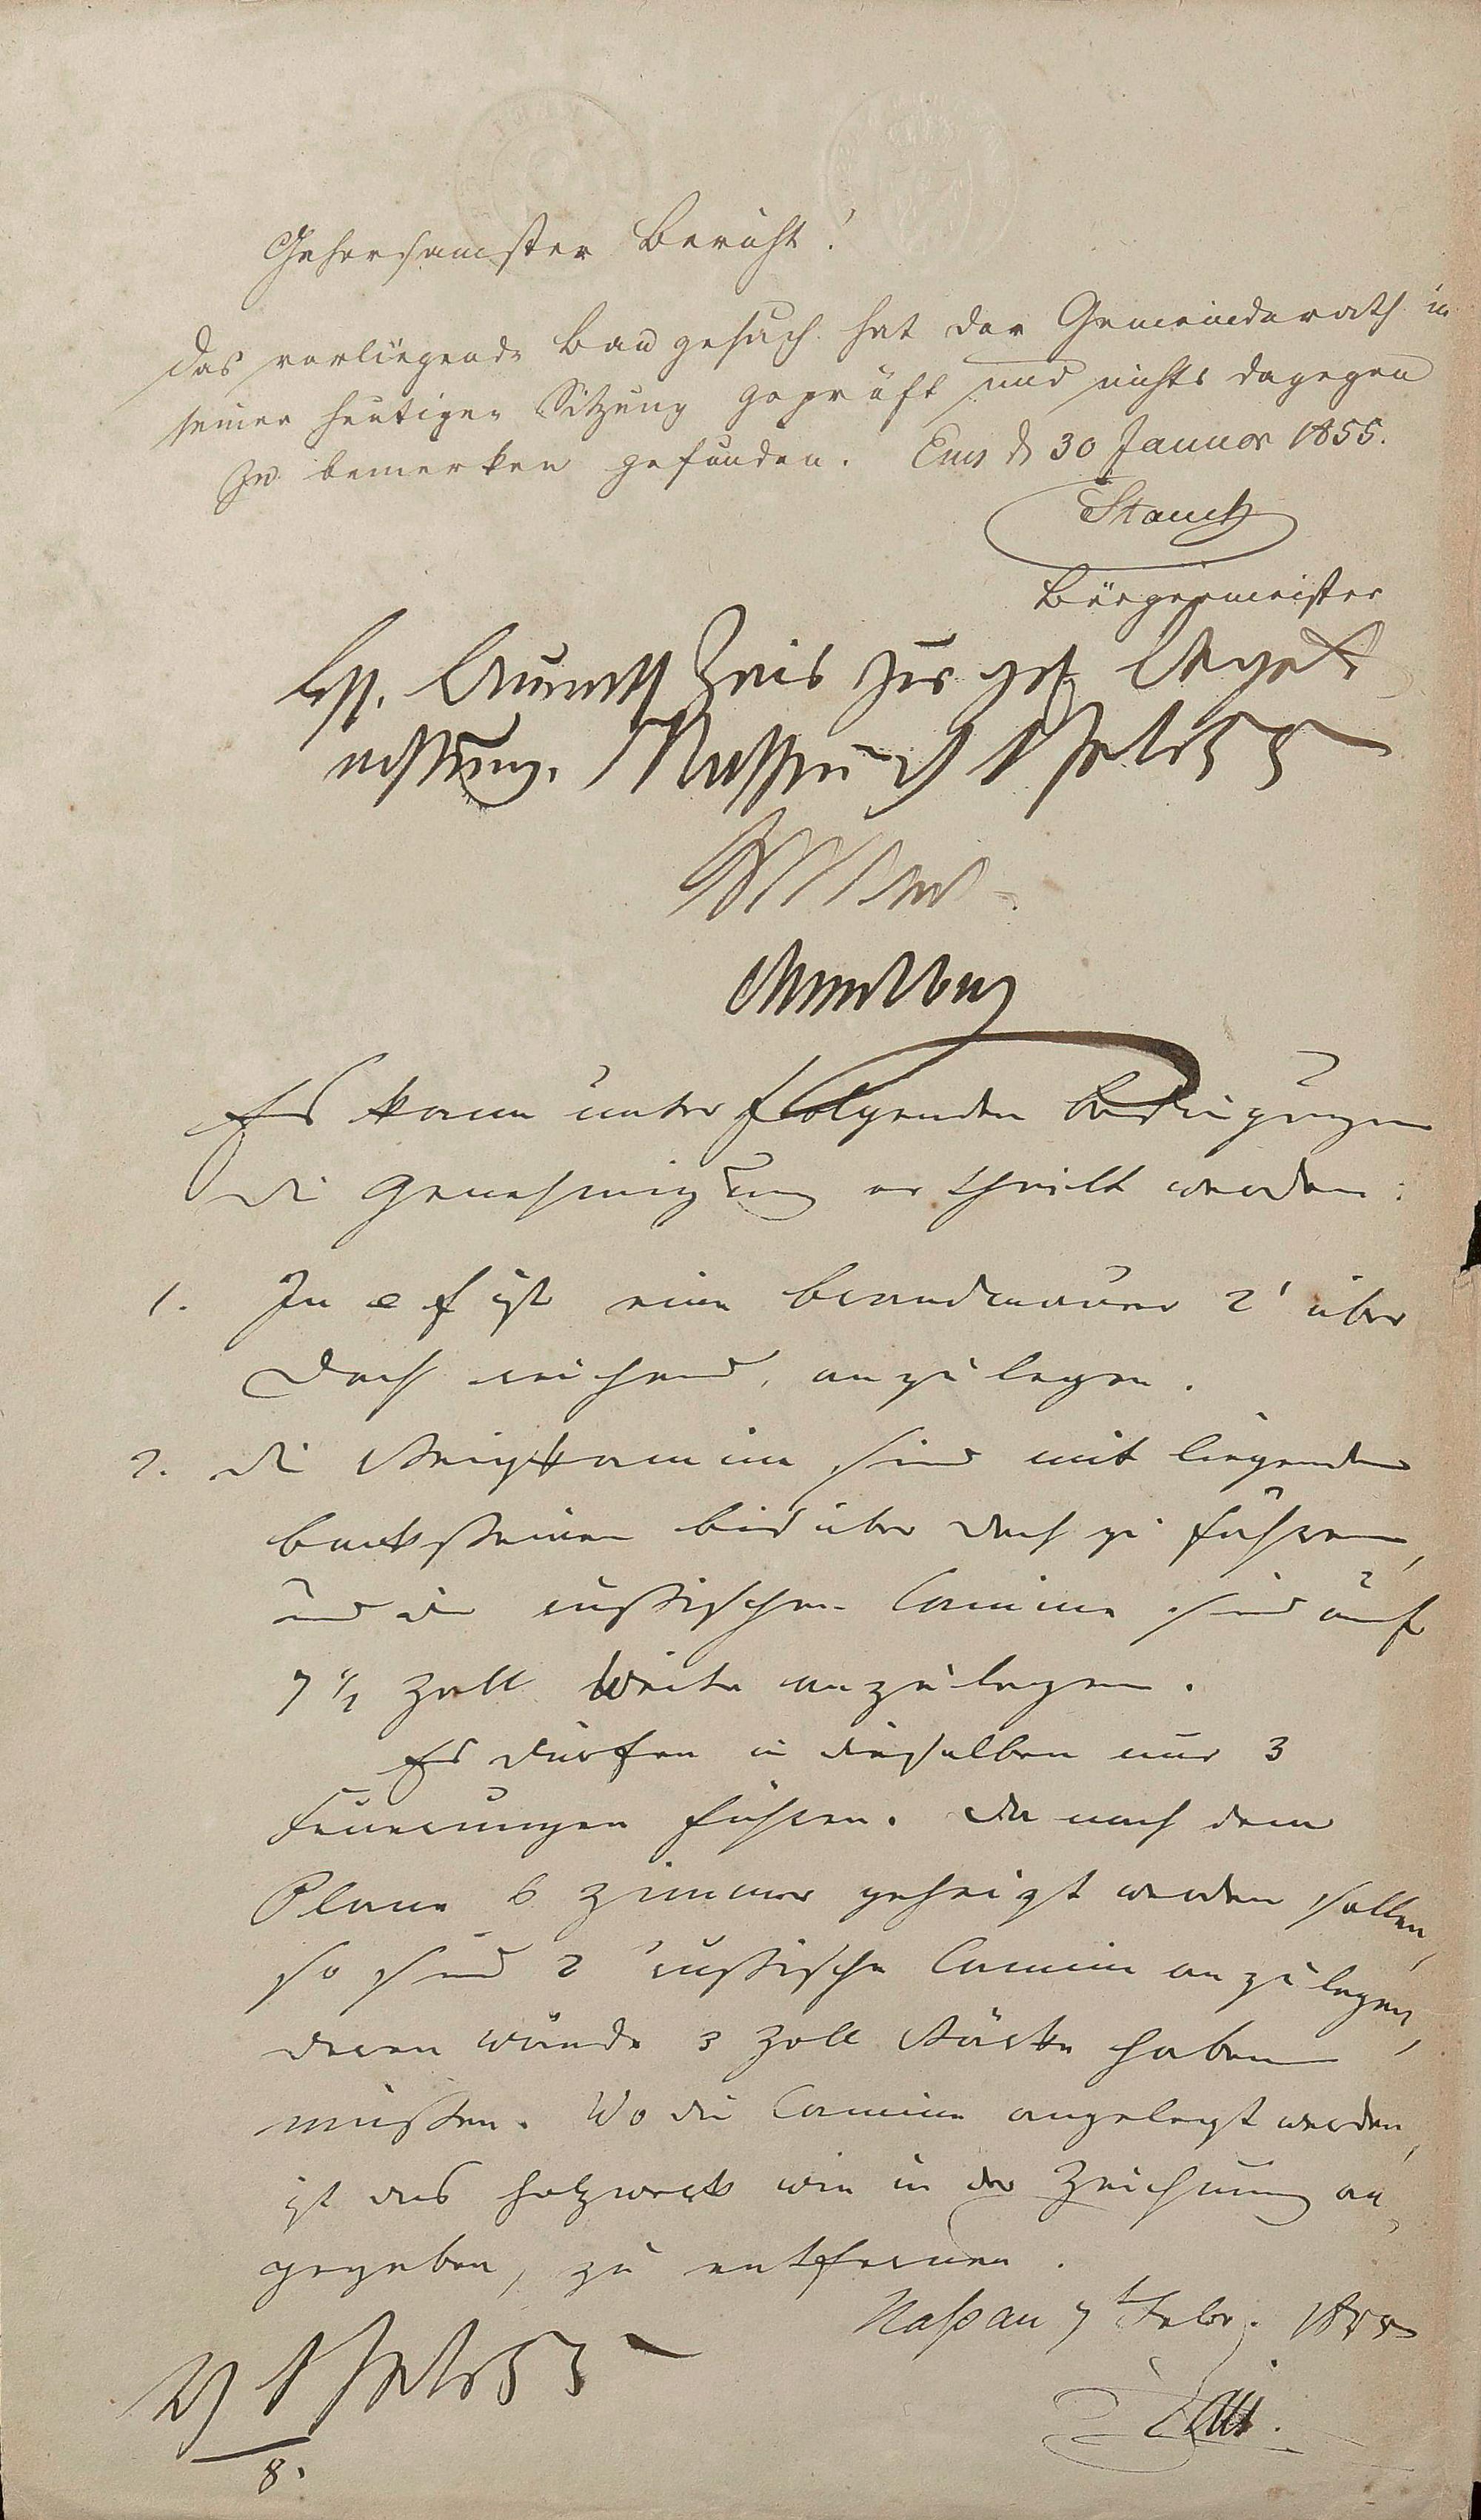 Gehorsamster Bericht!
Das vorliegende Baugesuch hat der Gemeinderath in
seiner heutigen Sitzung geprüft und nichts dagegen
zu bemerken gefunden. Ems d 30 Januar 1855.
Stauch
Bürgermeister
Zais zur gef.
Nassau d 1 Febr 55
Es kann unter folgenden Bedingungen
die Genehmigung ertheilt werden:
1. In e f ist eine Brandmauer 2' über
Dach reichend, anzulegen.
2. die Steigkamine sind mit liegenden
Backsteinen bis über Dach zu führen,
und die russischen Camine sind auf
7 1/2 Zoll Weite anzulegen.
Es dürfen in dieselben nur 3
Feuerungen führen. Da nach dem
Plane 6 Zimmer geheizt werden sollen,
so sind 2 russische Camine anzulegen,
deren Wände 3 Zoll Stärke haben
müssen. Wo die Camine angelegt werden,
ist das Holzwerk wie in der Zeichnung an
gegeben, zu entfernen.
Nassau 7t Febr. 1855
Zais.
8.